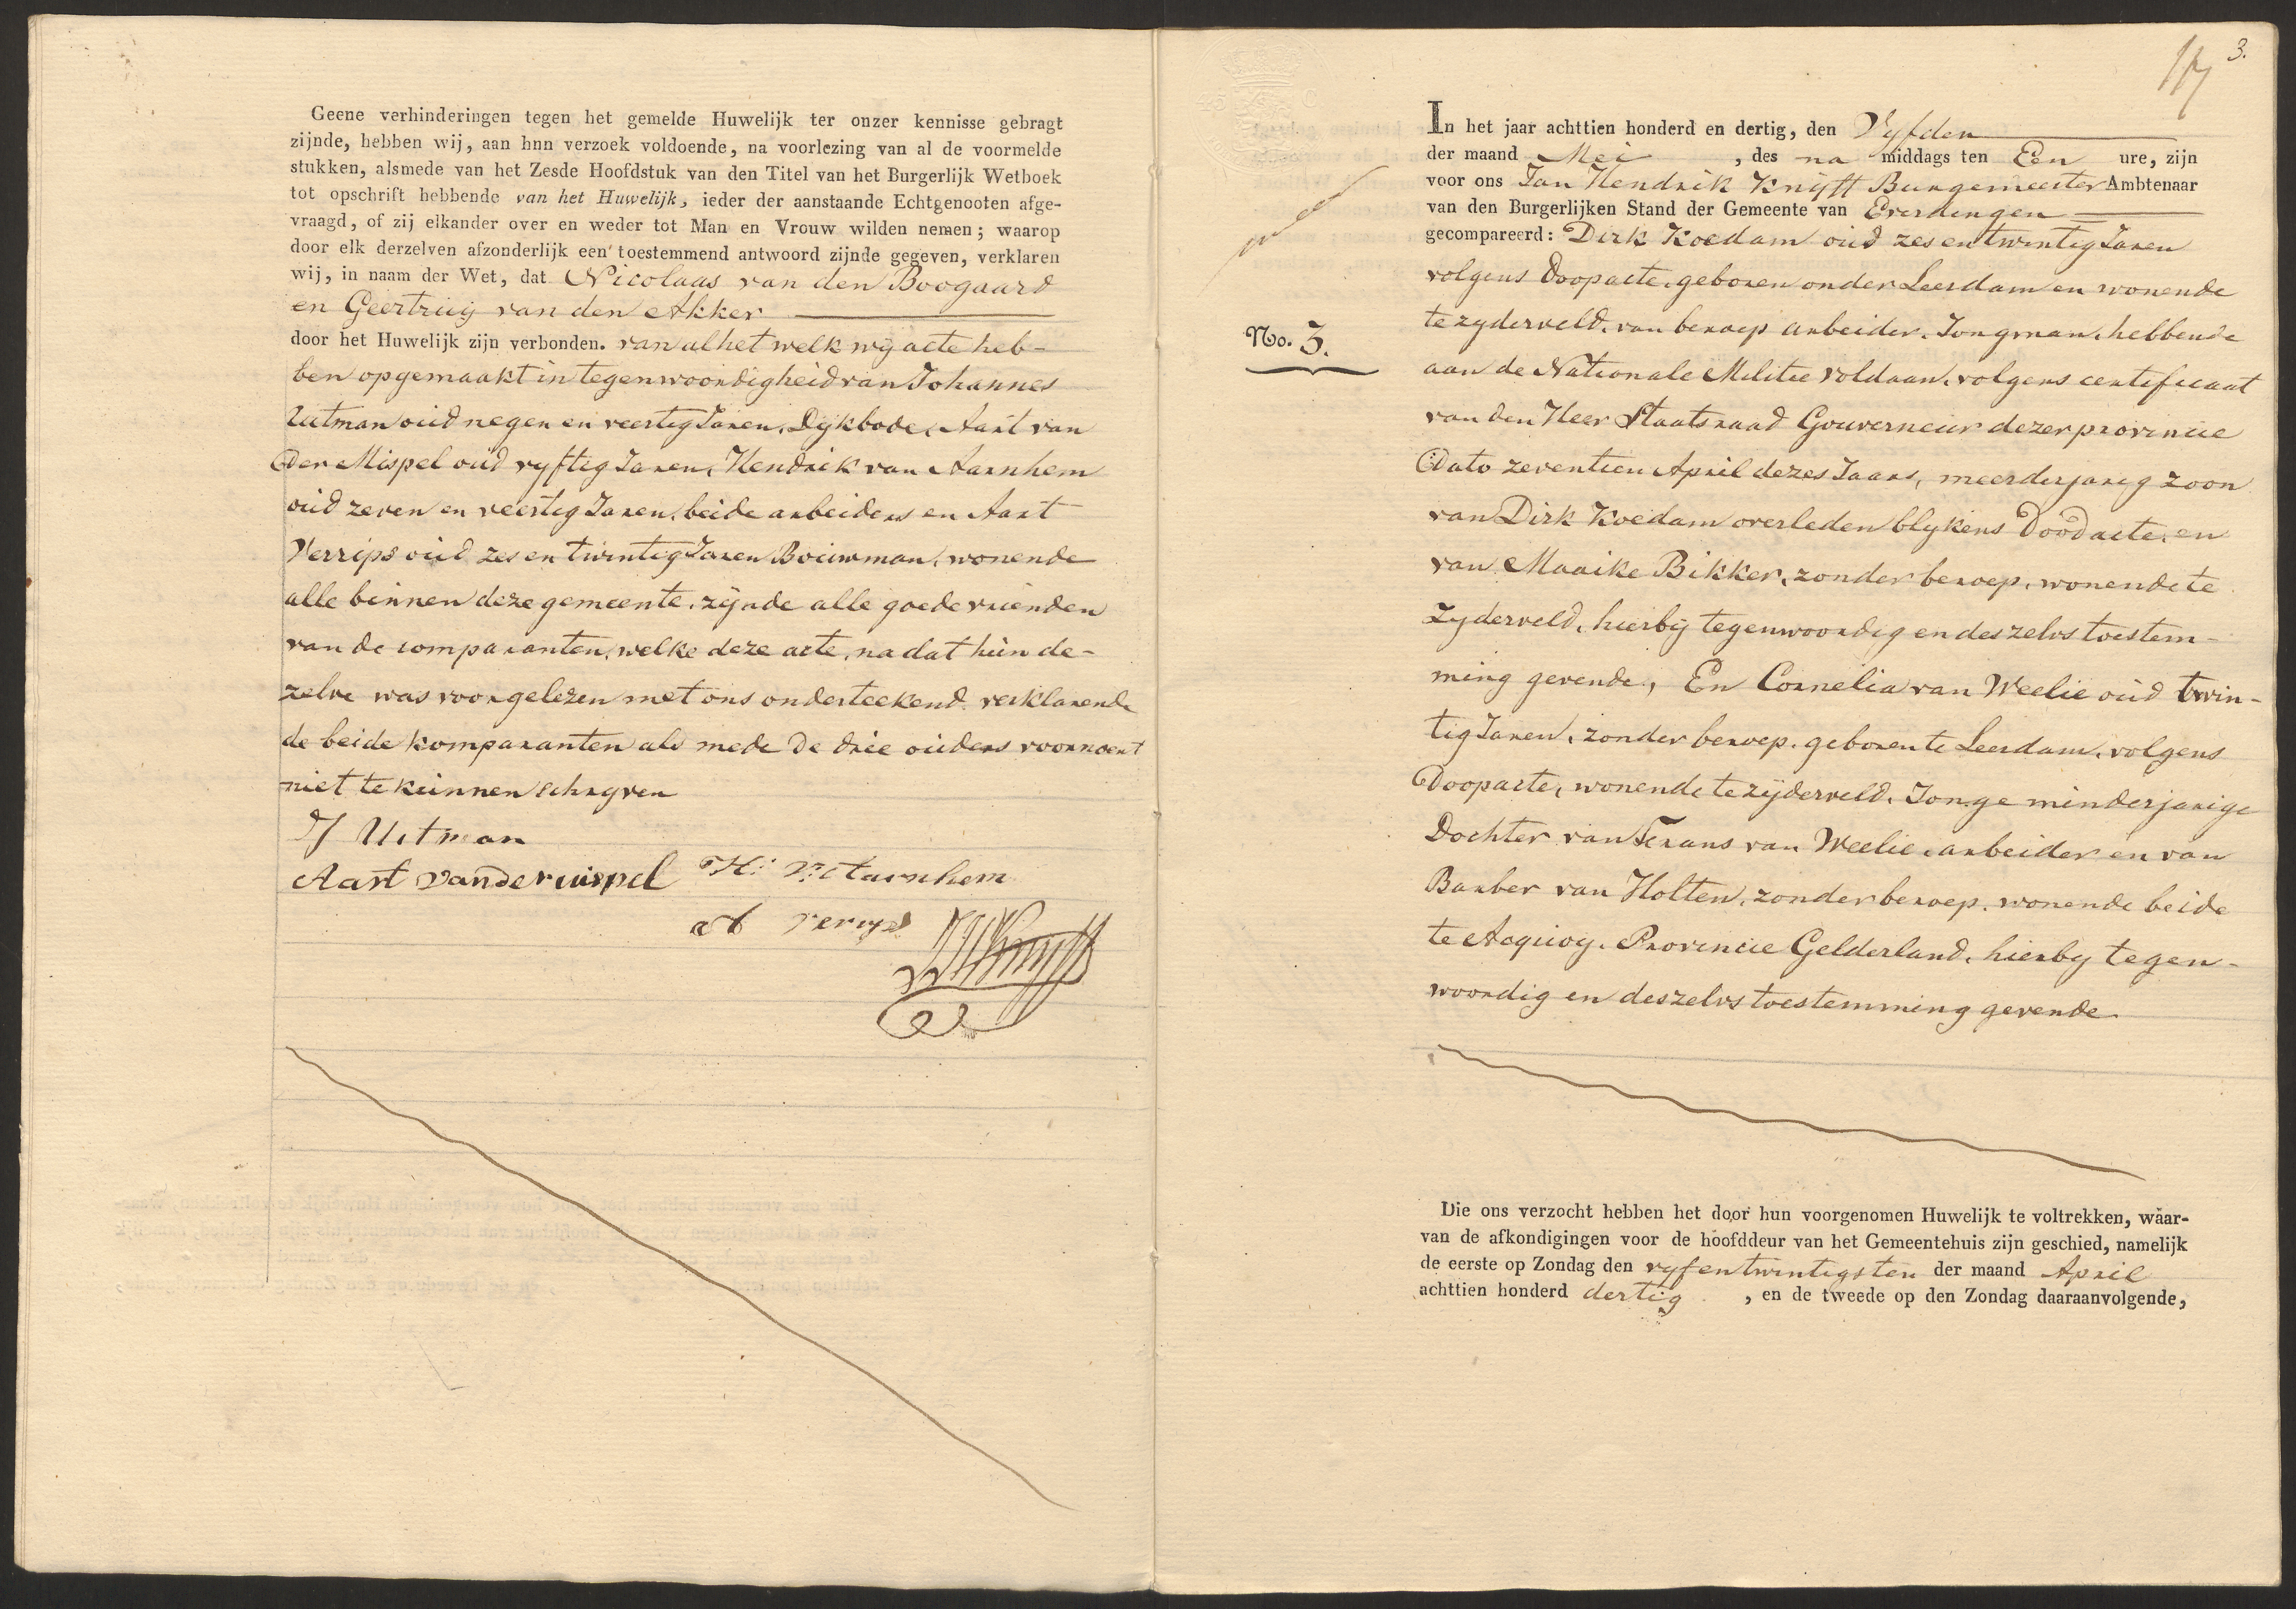 Geene verhinderingen tegen het gemelde Huwelijk ter onzer kennisse gebragt
zijnde, hebben wij, aan hnn verzoek voldoende, na voorlezing van al de voormelde
stukken, alsmede van het Zesde Hoofdstuk van den Titel van het Burgerlijk Wetboek
tot opschrift hebbende van het Huwelijk, ieder der aanstaande Echtgenooten afge-
vraagd, of zij elkander over en weder tot Man en Vrouw wilden nemen; waarop
door elk derzelven afzonderlijk een toestemmend antwoord zijnde gegeven, verklaren
wij, in naam der Wet, dat Nicolaas van den Boogaard
en Geertruij van den Akker
door het Huwelijk zijn verbonden. van al het welk wij acte heb-
ben opgemaakt in tegenwoordigheid van Johannes
Uitman oud negen en veertig Jaren, Dijkbode, Aart van
Der Mispel oud vyftig Jaren, Hendrik van Aarnhem
oud zeven en veertig Jaren, beide arbeiders en Aart
Verrips oud zes en twintig Jaren Bouwman, wonende
alle binnen deze gemeente, zijnde alle goede vrienden
van de comparanten, welke deze acte, na dat hun de-
zelve was voorgelezen met ons onderteekend verklarende
de beide komparanten als mede de drie ouders voornoemt
niet te kunnen schryven
J Uitman
Aart van der mispel H: v: Aarnhem
A verrips
JHKnijff
3.
In het jaar achttien honderd en dertig, den Vyfden
der maand Mei , des na middags ten Een ure, zijn
voor ons Jan Hendrik Knijff Burgemeester Ambtenaar
van den Burgerlijken Stand der Gemeente van Everdingen
gecompareerd: Dirk Koedam oud zes en twintig Jaren
volgens Doopacte, geboren onder Leerdam en wonende
te zyderveld, van beroep arbeider, Jongman, hebbende
No. 3.
aan de Nationale Militie voldaan, volgens certificaat
van den Heer Staatsraad Gouverneur dezer provincie
Dato zeventien April dezes Jaars, meerderjarig zoon
van Dirk Koedam overleden blykens Doodacte, en
van Maaike Bikker, zonder beroep, wonende te
Zyderveld, hierbij tegenwoordig en deszelvs toestem-
ming gevende, En Cornelia van Weelie oud twin-
tig Jaren, zonder beroep, geboren te Leerdam, volgens
Doopacte, wonende te zijderveld, Jonge minderjarige
Dochter van Frans van Weelie, arbeider en van
Barber van Holten, zonder beroep, wonende beide
te Acquoy, Provincie Gelderland, hierby tegen-
woordig en deszelvs toestemming gevende
Die ons verzocht hebben het door hun voorgenomen Huwelijk te voltrekken, waar-
van de afkondigingen voor de hoofddeur van het Gemeentehuis zijn geschied, namelijk
de eerste op Zondag den vyfentwintigsten der maand April
achttien honderd dertig , en de tweede op den Zondag daaraanvolgende,